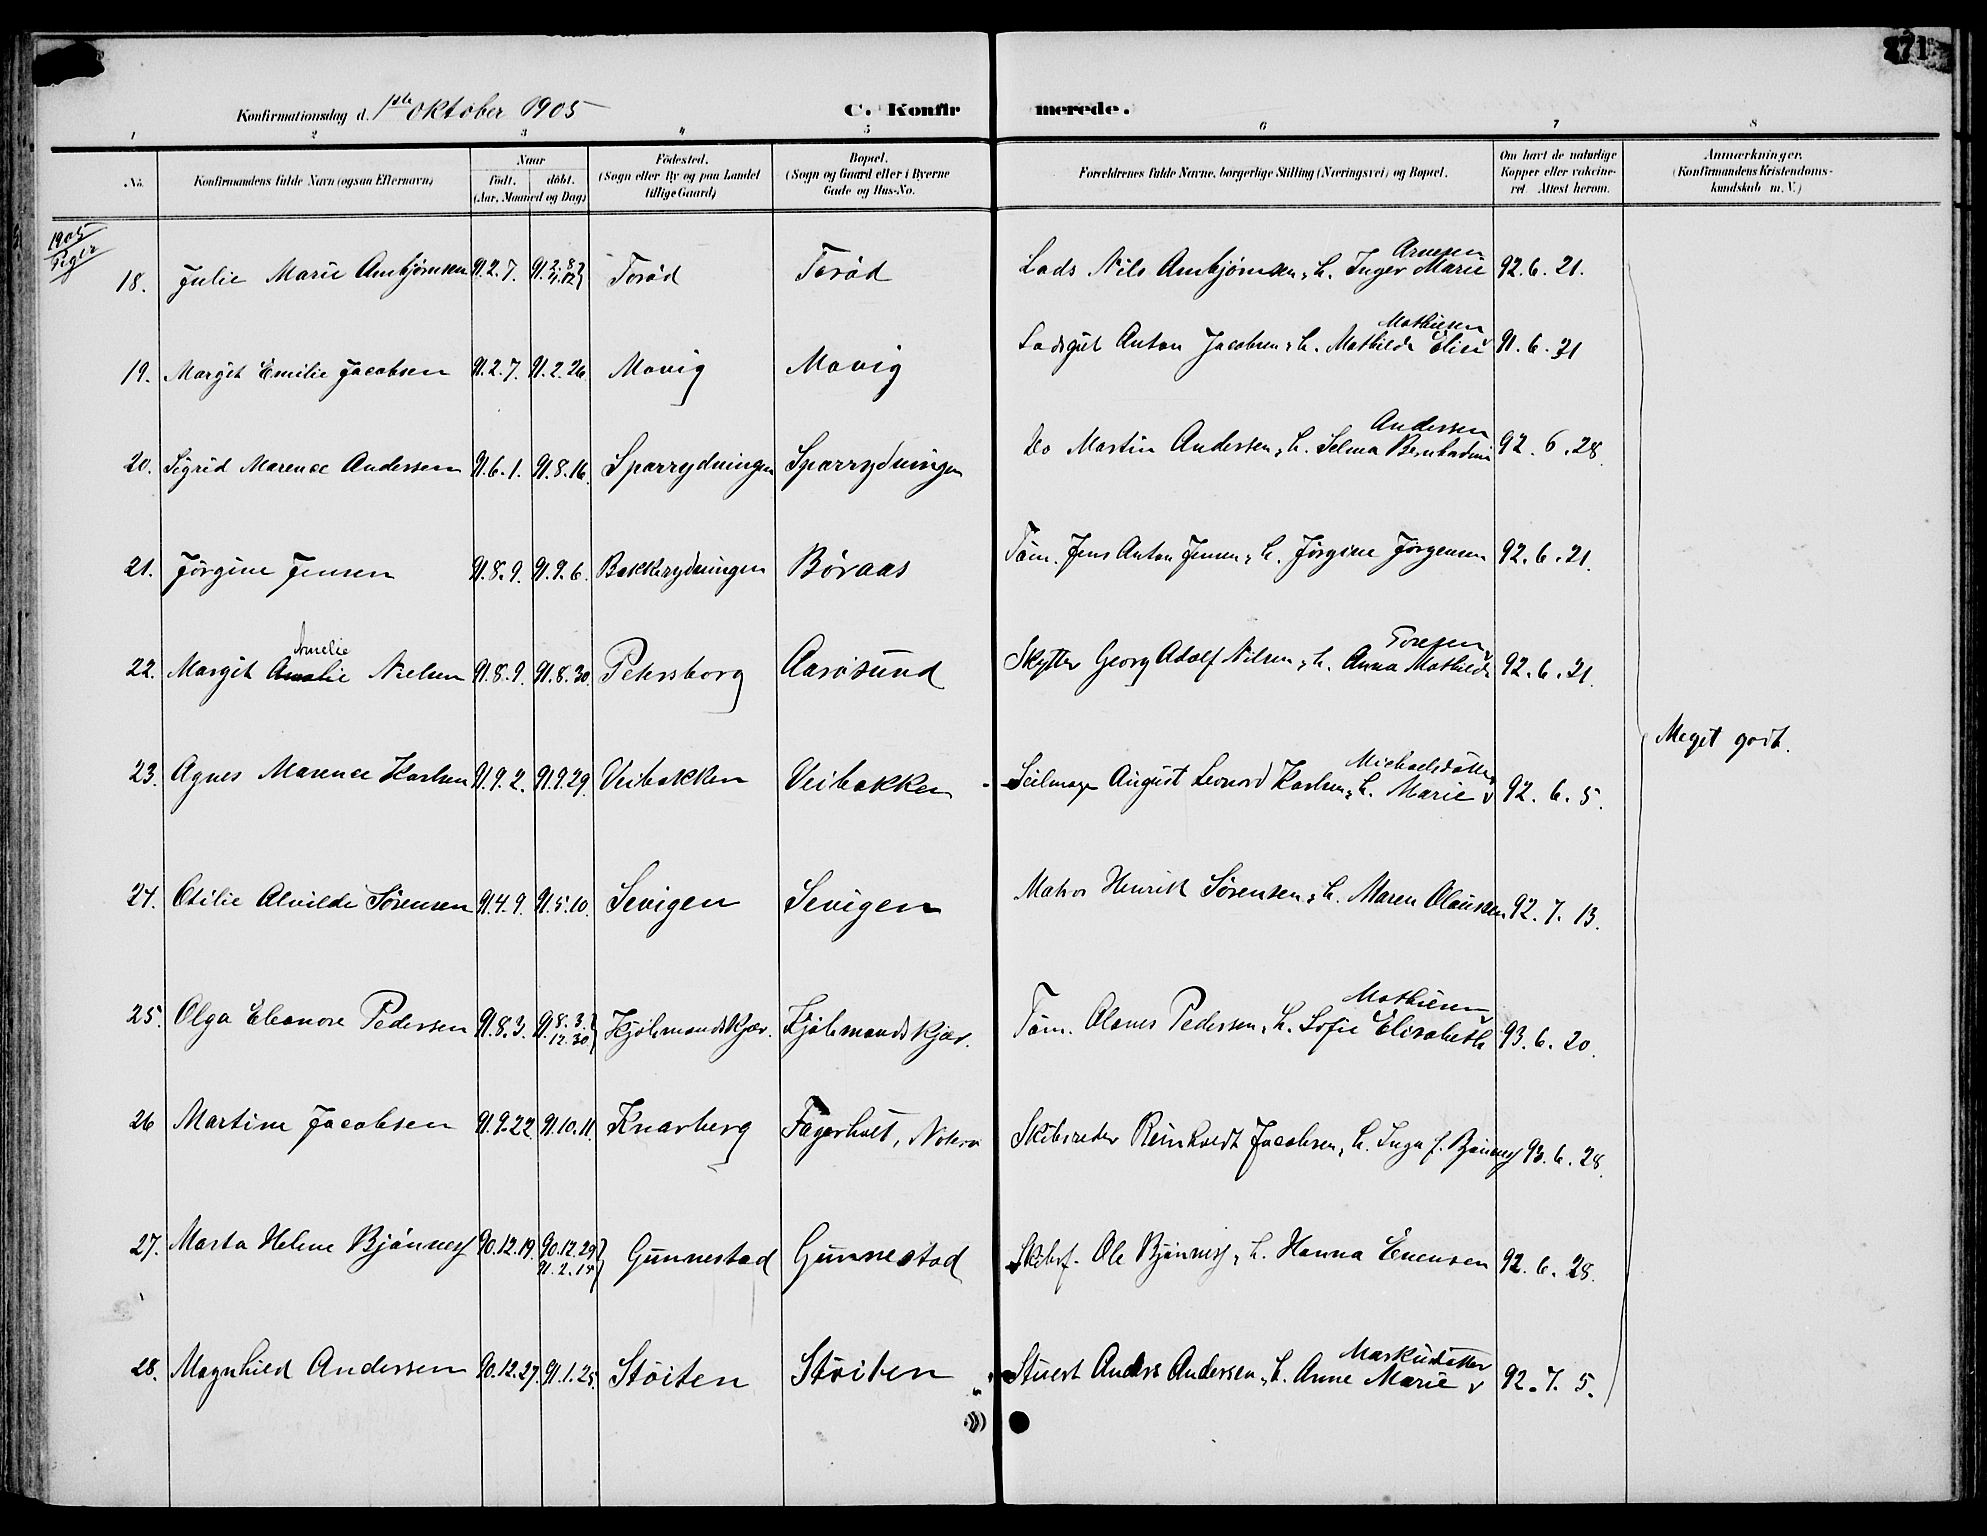 71
Konfirmationsdag d. 1ste Oktober 1905 C. Konfirmerede.
1 2 3 4 5 6 7 8
No. Konfirmandens fulde Navn (ogsaa Efternavn) Naar født. døbt. (Aar, Maaned og Dag) Fødested. (Sogn eller By og paa Landet tillige Gaard) Bopæl. (Sogn og Gaard eller i Byerne Gade og Hus-No. Forældrenes fulde Navne, borgerlige Stilling (Næringsvei) og Bopæl. Om havt de naturlige Kopper eller vakcineret. Attest herom. Anmærkninger. (Konfirmandens Kristendomskundskab m. V.)
1905
Piger
18. Julie Marie Arnbjørnsen 91.2.7. 91. 2. 8 4. 12 Torød Torød Lods Nils Arnbjørnsen, h. Inger Marie Arnesen 92.6.21.
19. Margit Emilie Jacobsen 91.2.7. 91.2.26. Movig Movig Lodsgut Anton Jacobsen, h. Mathilde Elise Mathisen 91.6.21
20. Sigrid Marence Andersen 91.6.1. 91.8.16. Sparrydningen Sparrydningen Do Martin Andersen, h. Selma Bernhardine Andersen 92.6.28.
21. Jørgine Jensen 91.8.9. 91.9.6. Bakkerydningen Børaas Tøm. Jens Anton Jensen, h. Jørgine Jørgensen 92.6.21.
22. Margit Amalie Amelie Nielsen 91.8.9. 91.8.30. Petersborg Aarøsund Skytter Georg Adolf Nilsen, h. Anna Mathilde 92.6.21.
Meget godt.
23. Agnes Marence Karlsen 91.9.2. 91.9.29. Veibakken Veibakken Seilmager August Leonard Karlsen, h. Marie Michaelsdatter 92.6.5.
24. Otilie Alvilde Sørensen 91.4.9. 91.5.10. Sevigen Sevigen Matros Henrik Sørensen, h. Maren Olausen 92.7.13.
25. Olga Eleonore Pedersen 91.8.3. 91. 8.3. 12.30 Kjølmandskjær. Kjølmandskjær. Tøm. Olaves Pedersen, h. Sofie Elisabeth Mathisen 93.6.20.
26 Martine Jacobsen 91.9.22 91.10.11. Knarberg Fagerholt, Noterø Skibsreder Reinholdt Jacobsen, h. Inga f. Bjønnes 93.6.28.
27. Marta Helene Bjønnes 90.12.19. 90.12.29 91.2.14 Gunnestad Gunnestad Skibsf. Ole Bjønnes, h. Hanna Evensen 92.6.28.
28. Magnhild Andersen 90.12.27. 91.1.25. Støiten Støiten Stuert Anders Andersen, h. Anne Marie Markusdatter 92.7.5.